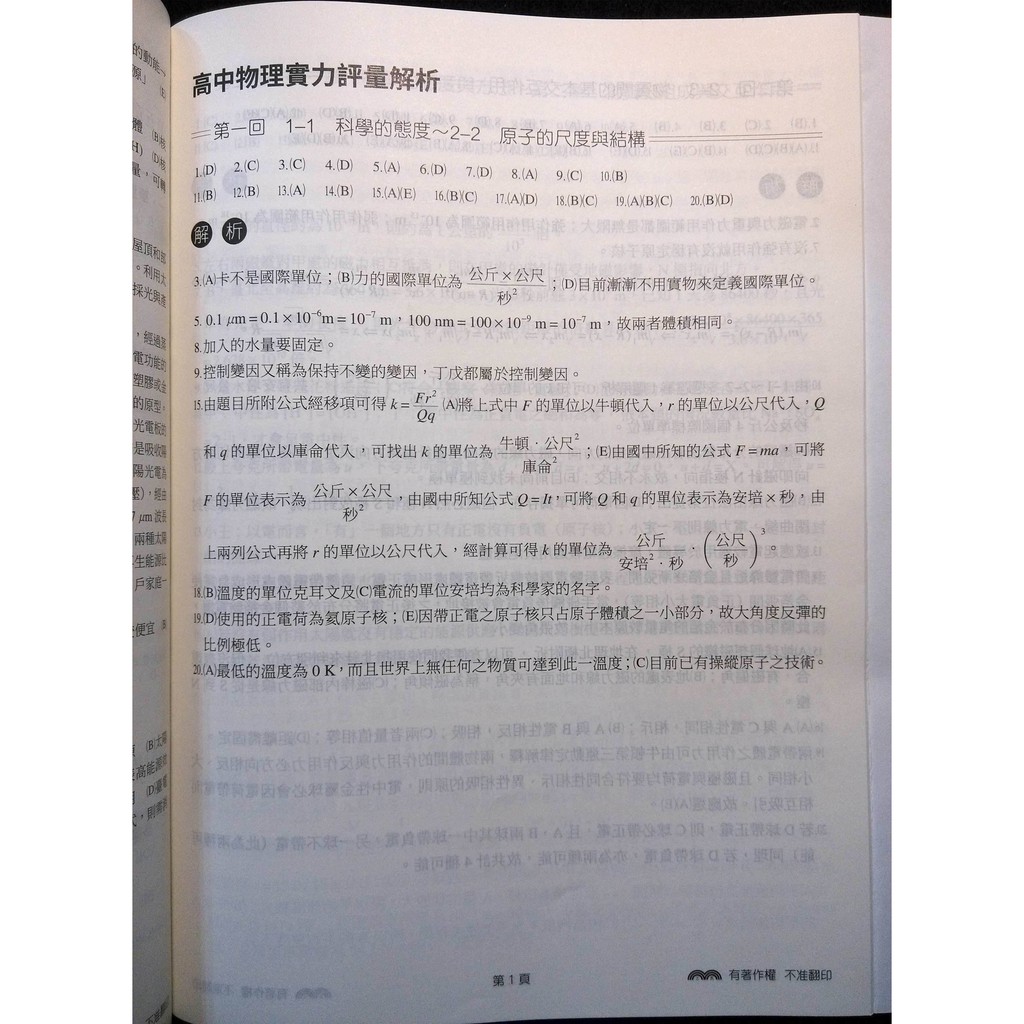 高中物理實力評量解析
第一回 1-1 科學的態度～2-2 原子的尺度與結構
1.(D) 2.(C) 3.(C) 4.(D) 5.(A) 6.(D) 7.(D) 8.(A) 9.(C) 10.(B)
11.(B) 12.(B) 13.(A) 14.(B) 15.(A)(E) 16.(B)(C) 17.(A)(D) 18.(B)(C) 19.(A)(B)(C) 20.(B)(D)
解析
3.(A)卡不是國際單位；(B)力的國際單位為 公斤×公尺/秒²；(D)目前漸漸不用實物來定義國際單位。
5. 0.1 μm = 0.1 × 10⁻⁶m = 10⁻⁷ m，100 nm = 100 × 10⁻⁹ m = 10⁻⁷ m，故兩者體積相同。
8.加入的水量要固定。
9.控制變因又稱為保持不變的變因，丁戊都屬於控制變因。
15.由題目所附公式經移項可得 k = Fr²/Qq (A)將上式中 F 的單位以牛頓代入，r 的單位以公尺代入，Q
和 q 的單位以庫侖代入，可找出 k 的單位為 牛頓．公尺²/庫侖²；(E)由國中所知的公式 F = ma，可將
F 的單位表示為 公斤×公尺/秒²，由國中所知公式 Q = It，可將 Q 和 q 的單位表示為安培 × 秒，由
上兩列公式再將 r 的單位以公尺代入，經計算可得 k 的單位為 公斤/安培²．秒．(公尺/秒)³。
18.(B)溫度的單位克耳文及(C)電流的單位安培均為科學家的名字。
19.(D)使用的正電荷為氦原子核；(E)因帶正電之原子核只占原子體積之一小部分，故大角度反彈的
比例極低。
20.(A)最低的溫度為 0 K，而且世界上無任何之物質可達到此一溫度；(C)目前已有操縱原子之技術。
第 1 頁
有著作權 不准翻印